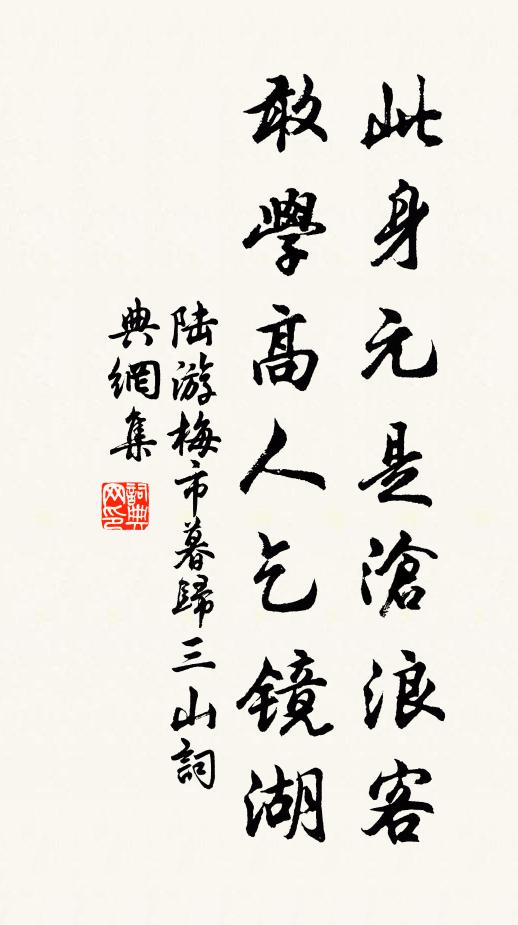 此身元是滄浪客
敢學高人乞镜湖
陆游梅市暮歸三山詞
典網集
詞典网印